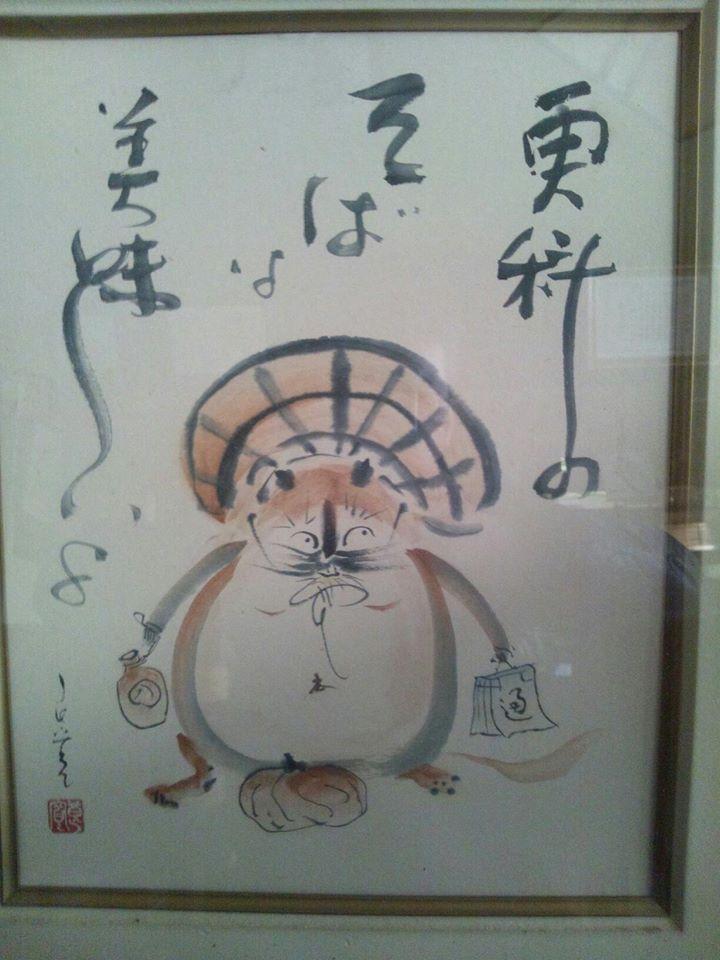 更科の
そばは
美味しいよ
の
通